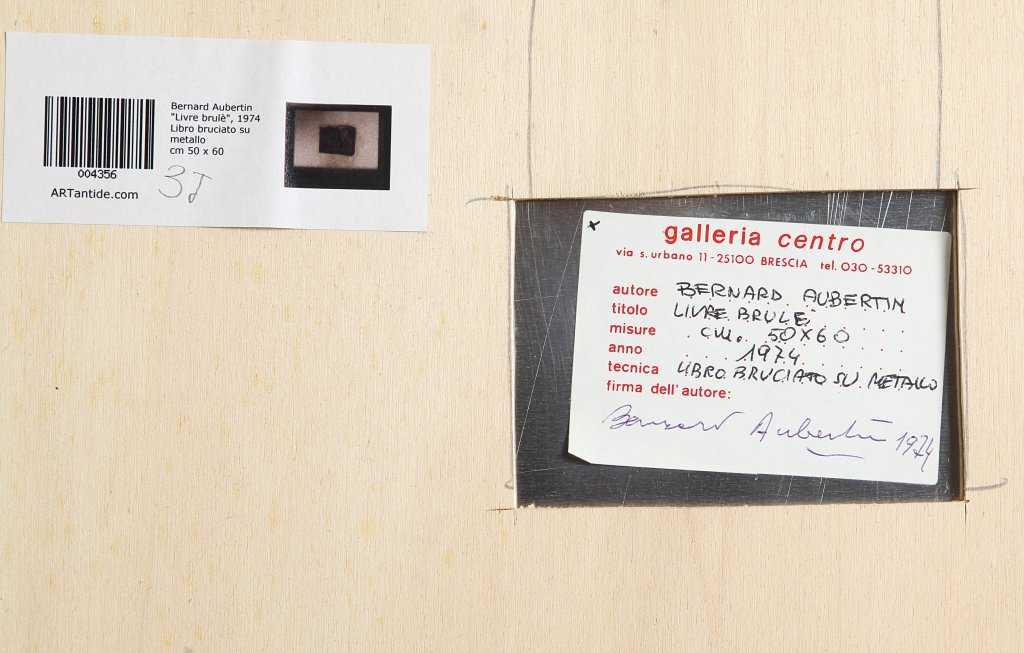 Bernard Aubertin
"Livre brulè", 1974
Libro bruciato su
metallo
cm 50 x 60
004356
ARTantide.com
x
galleria centro
via s. urbano 11 - 25100 BRESCIA tel. 030 - 53310
autore BERNARD AUBERTIN
titolo LIVRE BRULE'
misure cm. 50X60
anno 1974
tecnica LIBRO BRUCIATO SU METALLO
firma dell'autore:
Bernard Aubertin 1974